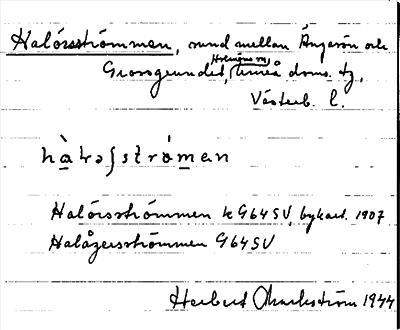 Halörsströmmen, sund mellan Ängerön och
Grossgrundet, Holmöns sn, Umeå doms. tg,
Västerb. l.
hàlrəʃstrǿmen
Halörsströmmen k G64SV, bykart. 1907
Halågersströmmen G64SV
Herbert Markström 1944